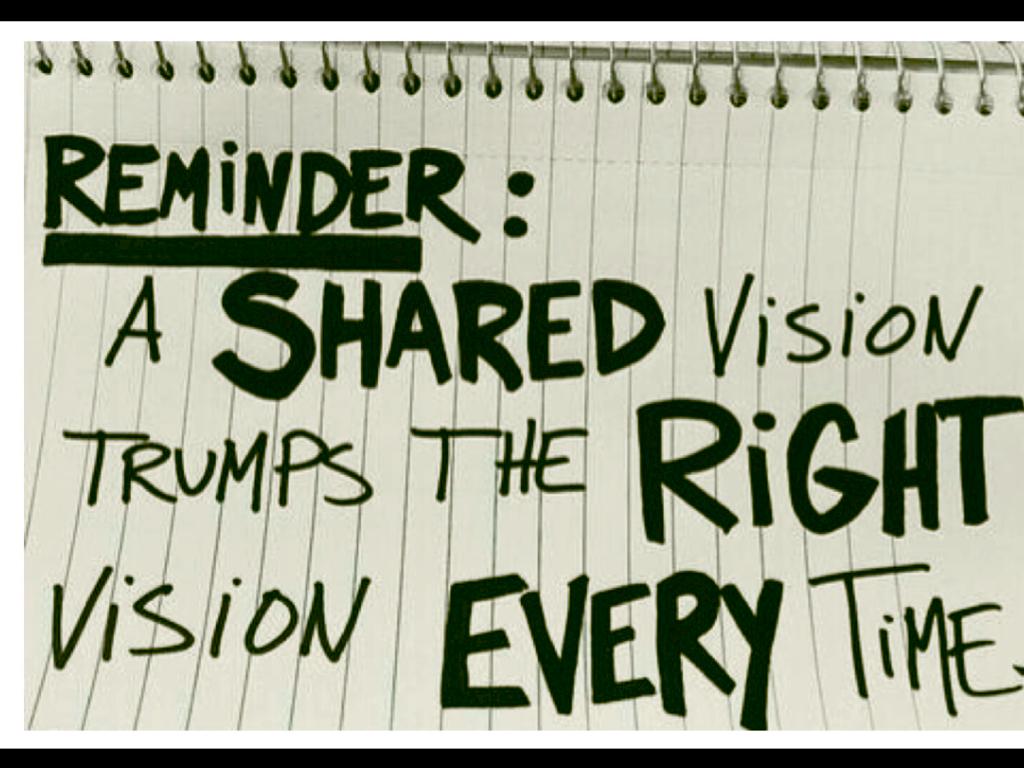 REMINDER:
A SHARED VISION
TRUMPS THE RIGHT
VISION EVERY TIME.